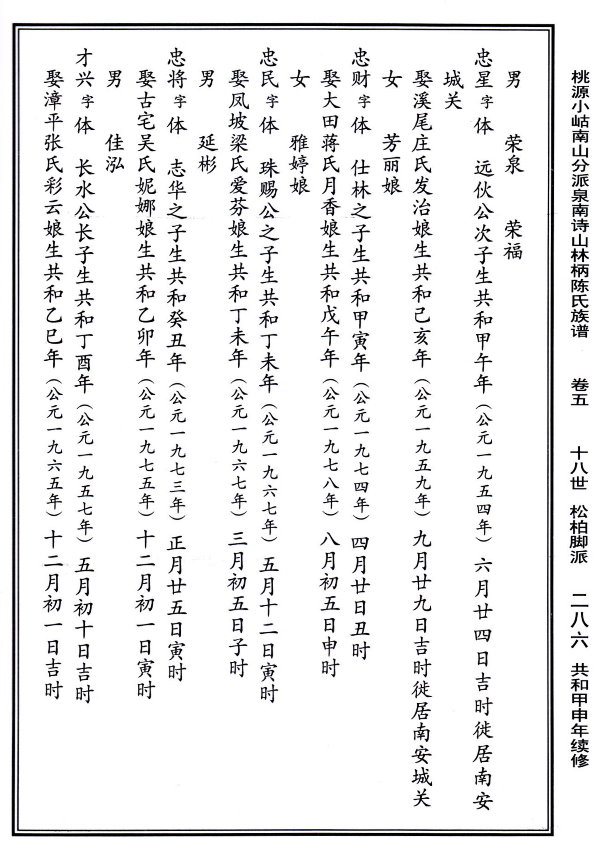 桃源小岵南山分派泉南诗山林柄陈氏族谱 卷五 十八世 松柏脚派 二八六 共和甲申年续修
男 荣泉 荣福
忠星字体 远伙公次子生共和甲午年（公元一九五四年）六月廿四日吉时徙居南安
城关
娶溪尾庄氏发治娘生共和己亥年（公元一九五九年）九月廿九日吉时徙居南安城关
女 芳丽娘
忠财字体 仕林之子生共和甲寅年（公元一九七四年）四月廿日丑时
娶大田蒋氏月香娘生共和戊午年（公元一九七八年）八月初五日申时
女 雅婷娘
忠民字体 珠赐公之子生共和丁未年（公元一九六七年）五月十二日寅时
娶凤坡梁氏爱芬娘生共和丁未年（公元一九六七年）三月初五日子时
男 延彬
忠将字体 志华之子生共和癸丑年（公元一九七三年）正月廿五日寅时
娶古宅吴氏妮娜娘生共和乙卯年（公元一九七五年）十二月初一日寅时
男 佳泓
才兴字体 长水公长子生共和丁酉年（公元一九五七年）五月初十日吉时
娶漳平张氏彩云娘生共和乙巳年（公元一九六五年）十二月初一日吉时